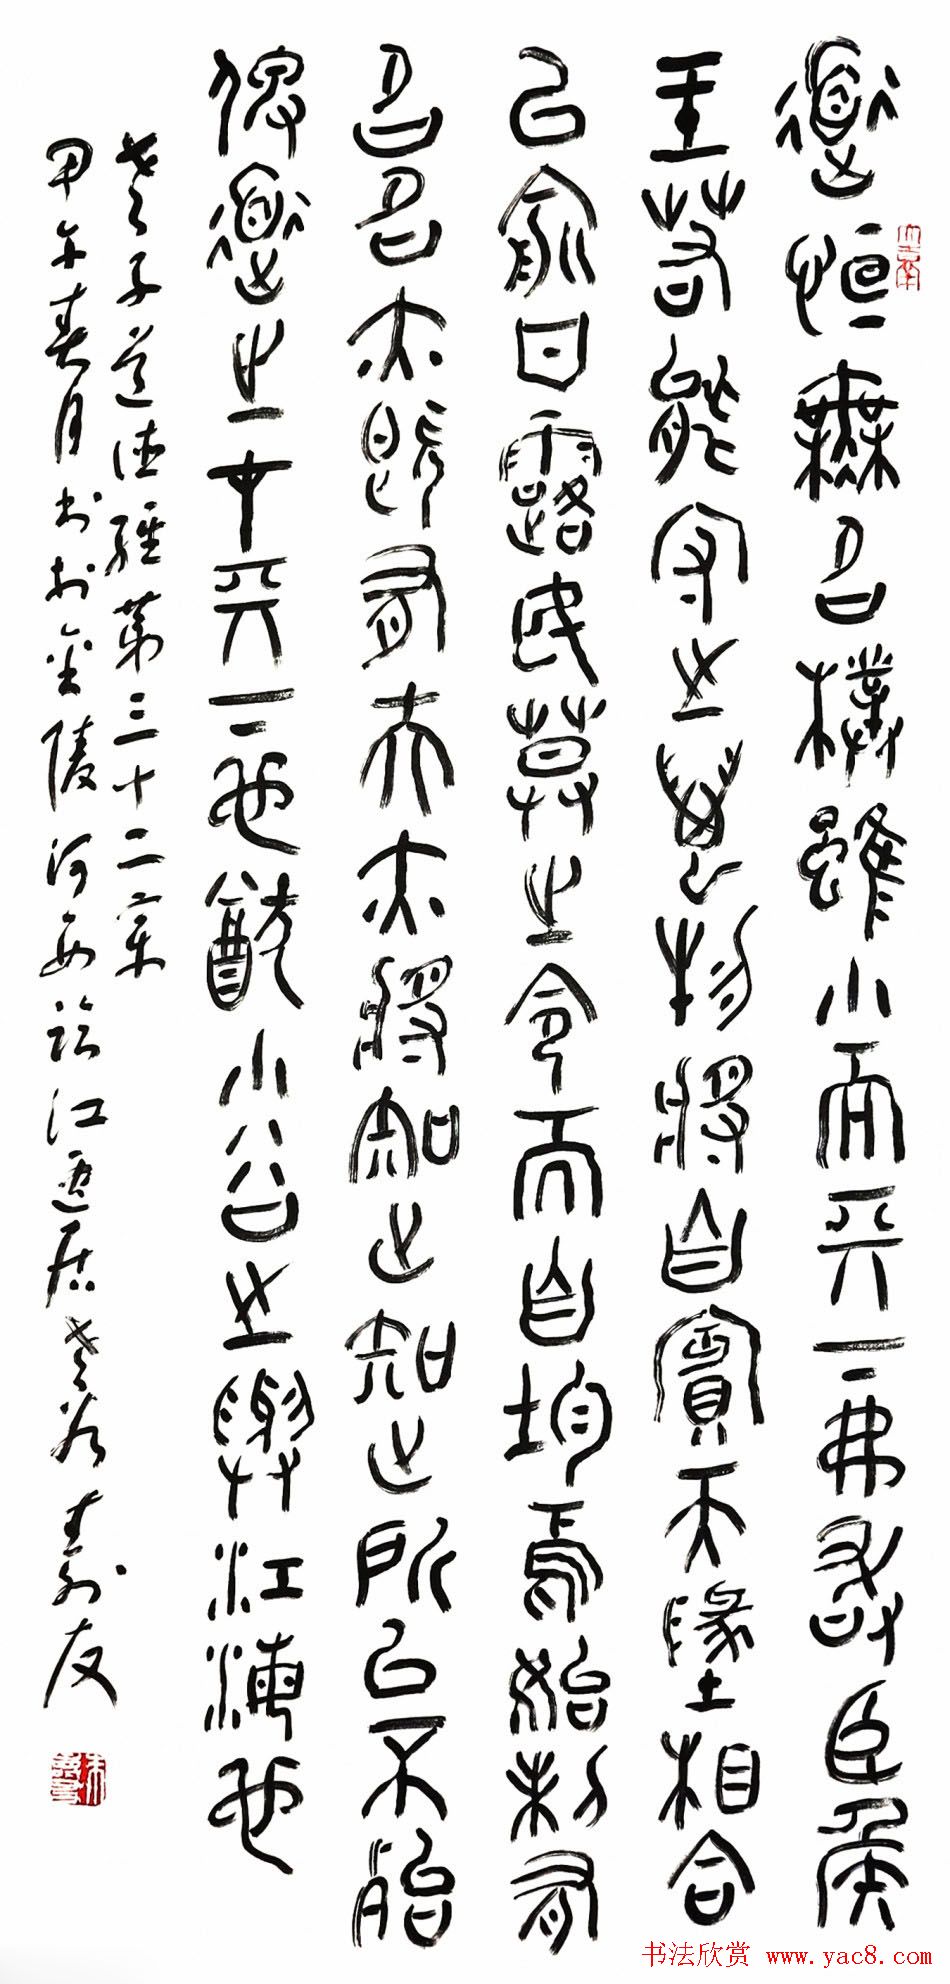 道恒無名樸雖小而天下弗敢臣侯
王若能守之萬物將自賓天墬相合
以俞甘露民莫之令而自均焉始制有
名名亦既有夫亦將知止知止所以不殆
俾道之在天下也猷小谷之與江海也
老子道德經第三十二章
甲午春月书於金陵河西临江逸居寿友
书法欣赏 www.yac8.com